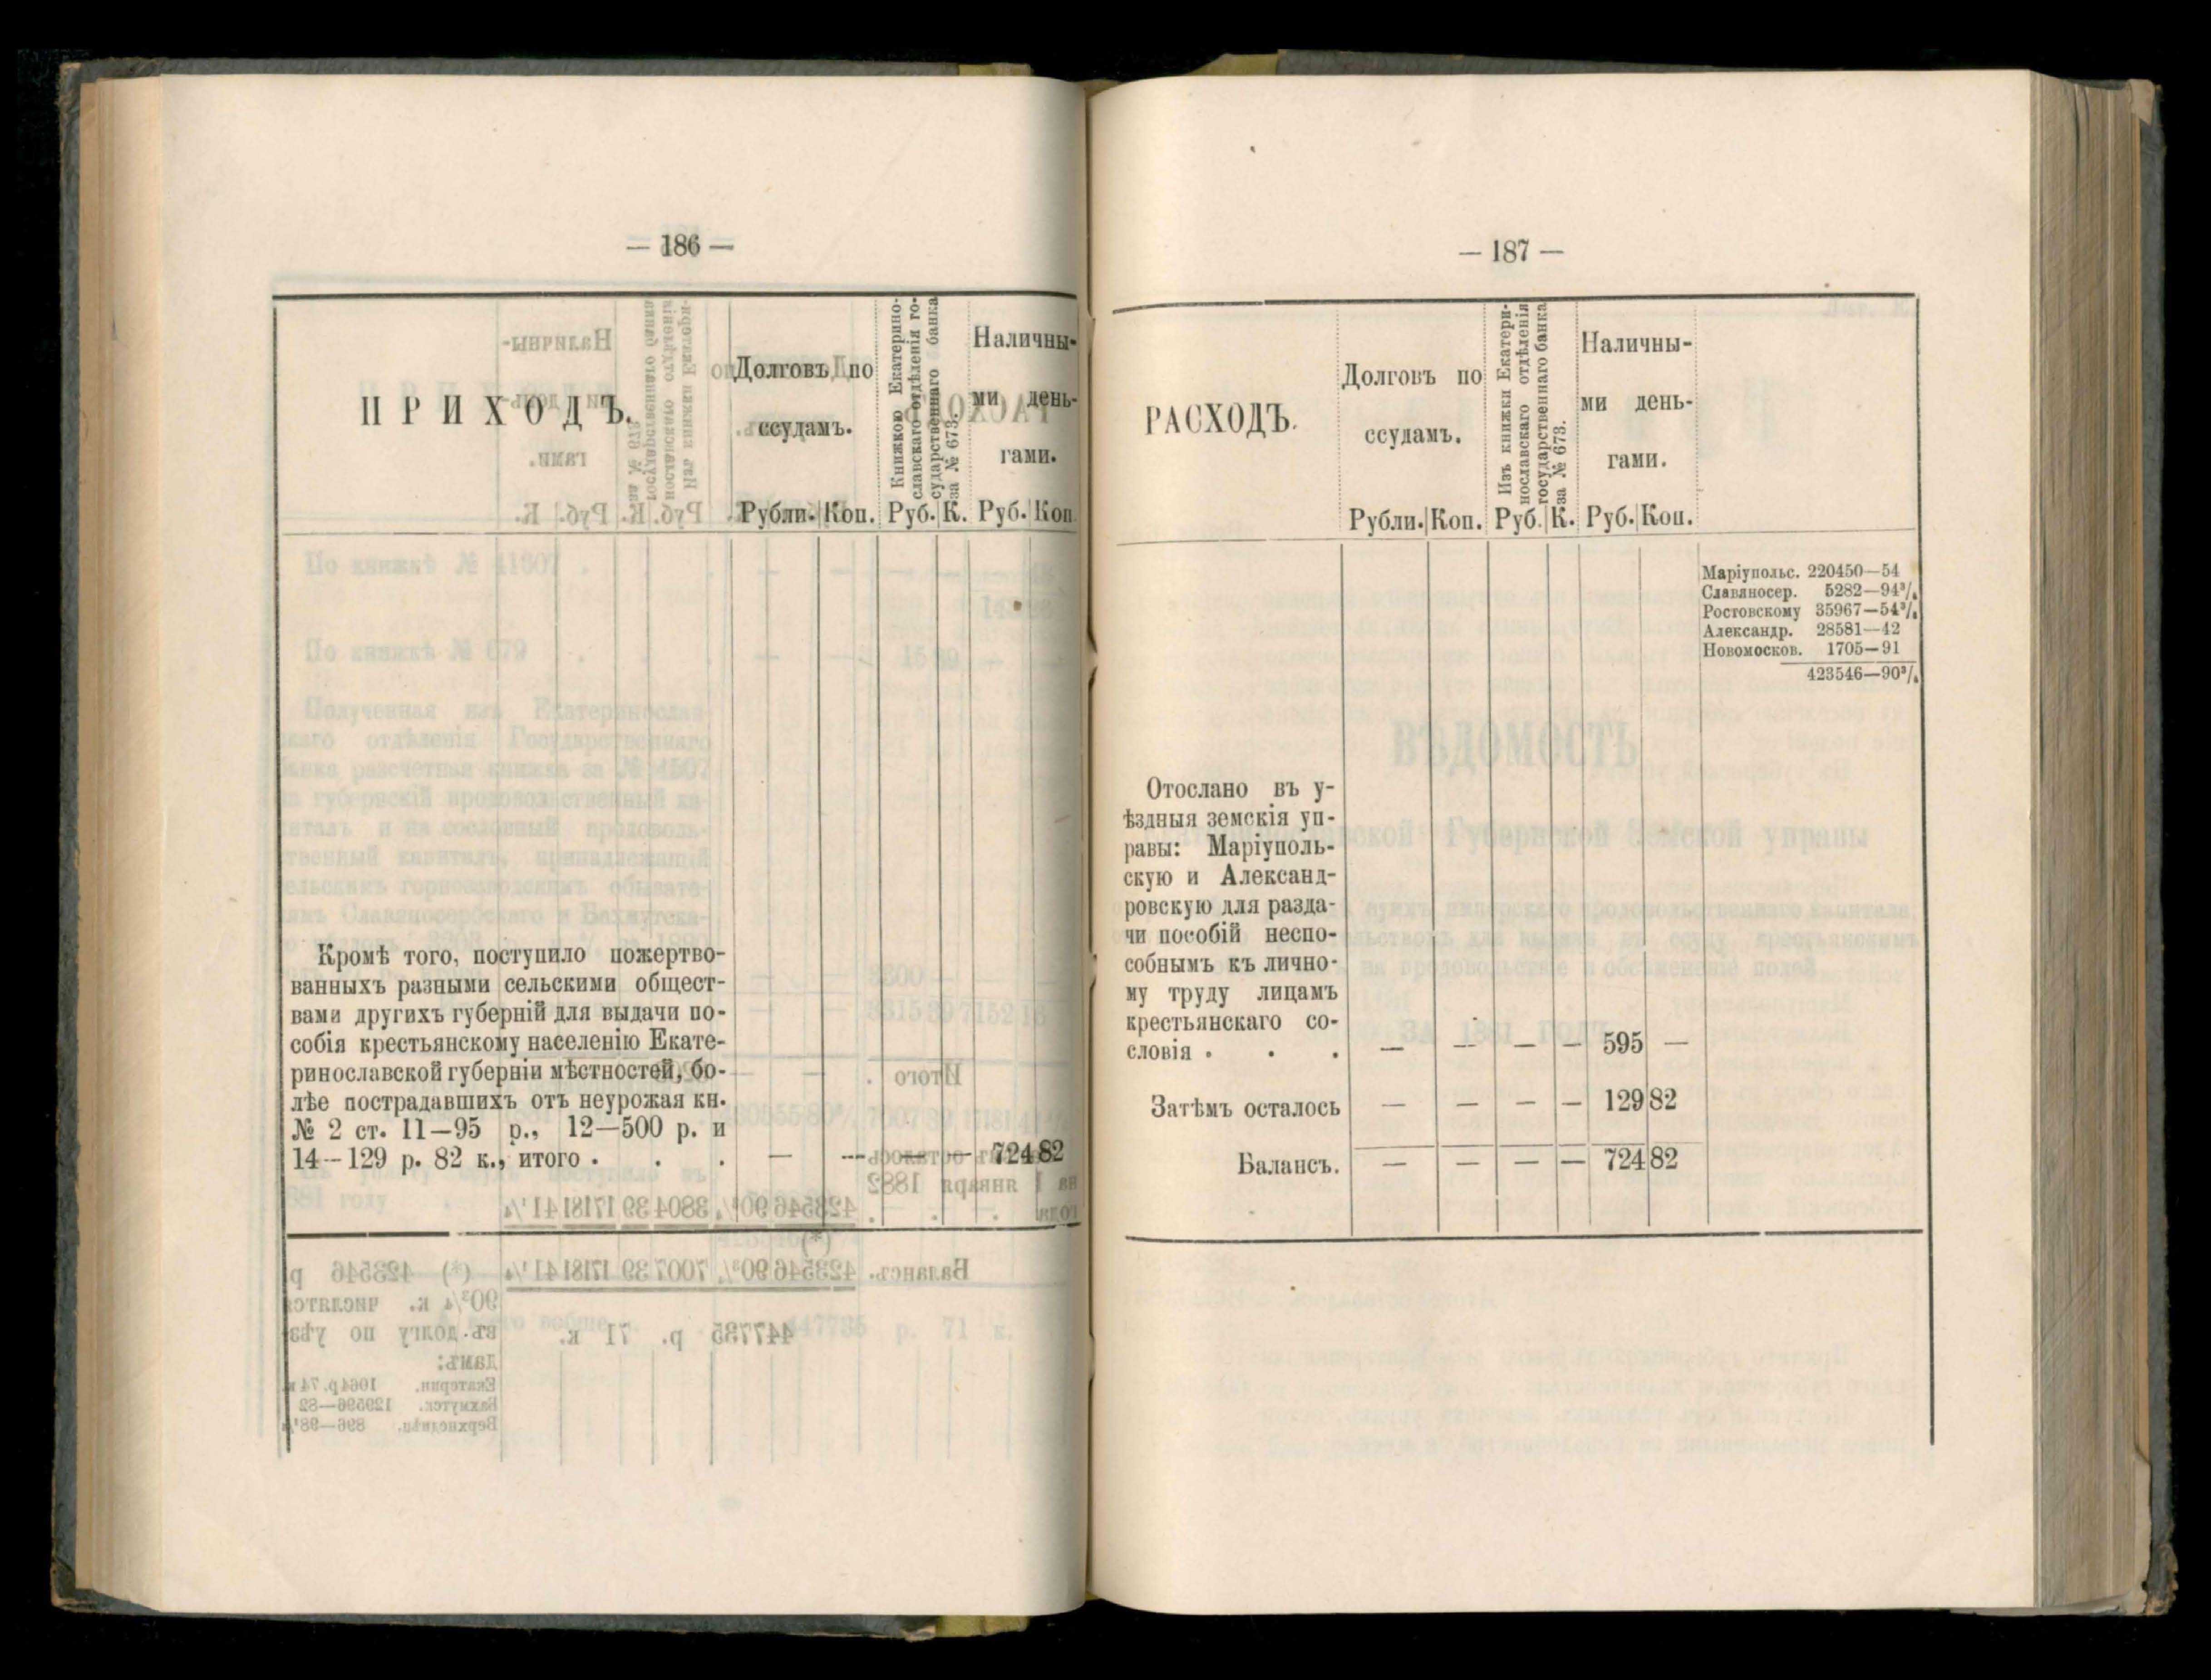 — 186 —
ПРИХОДЪ.
Долговъ по
ссудамъ.
Книжкою Екатерино-
славскаго отдѣленія го-
сударственнаго банка
за № 673.
Наличны-
ми день-
гами.
Рубли. Коп. Руб. К. Руб. Коп.
Кромѣ того, поступило пожертво-
ванныхъ разными сельскими общест-
вами другихъ губерній для выдачи по-
собія крестьянскому населенію Екате-
ринославской губерніи мѣстностей, бо-
лѣе пострадавшихъ отъ неурожая кн.
№ 2 ст. 11—95 р., 12—500 р. и
14—129 р. 82 к., итого . . . — — — — 724 82
— 187 —
РАСХОДЪ.
Долговъ по
ссудамъ.
Изъ книжки Екатери-
нославскаго отдѣленія
государственнаго банка
за № 673.
Наличны-
ми день-
гами.
Рубли. Коп. Руб. К. Руб. Коп.
Маріупольс. 220450—54
Славяносер. 5282—94³/₄
Ростовскому 35967—54³/₄
Александр. 28581—42
Новомосков. 1705—91
423546—90³/₄
Отослано въ у-
ѣздныя земскія уп-
равы: Маріуполь-
скую и Александ-
ровскую для разда-
чи пособій неспо-
собнымъ къ лично-
му труду лицамъ
крестьянскаго со-
словія . . . — — — — 595 —
Затѣмъ осталось — — — — 129 82
Балансъ. — — — — 724 82